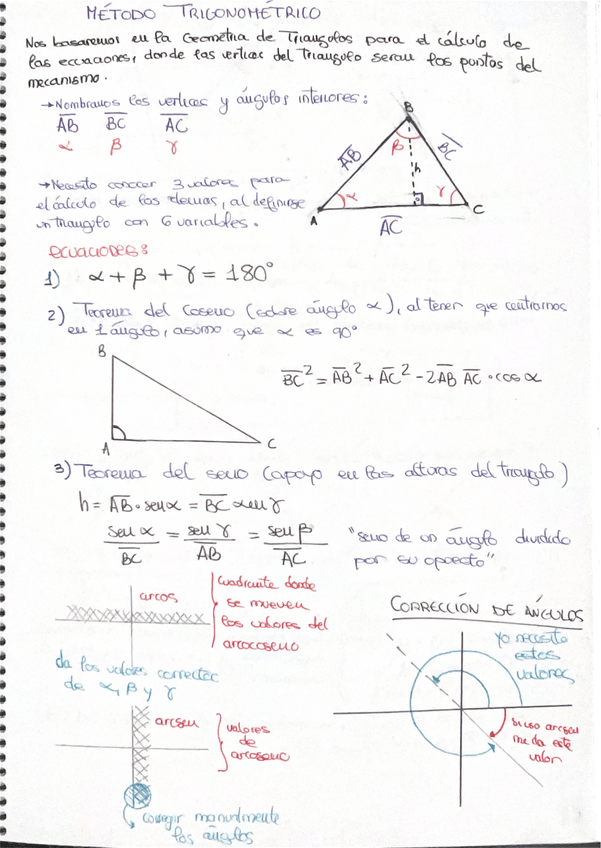 MÉTODO TRIGONOMÉTRICO
Nos basaremos en la Geometría de Triangulos para el cálculo de
las ecuaciones, donde las vertices del Triangulo seran los puntos del
mecanismo.
→ Nombramos los vertices y ángulos interiores:
A̅B̅ B̅C̅ A̅C̅
α β γ
B
A̅B̅ β B̅C̅
h
α γ
A C
A̅C̅
→ Necesito conocer 3 valores para
el cálculo de los demas, al definirse
un triangulo con 6 variables.
ecuaciones:
1) α + β + γ = 180°
2) Teorema del Coseno (sobre ángulo α), al tener que centrarnos
en 1 ángulo, asumo que α es 90°
B
A C
B̅C̅² = A̅B̅² + A̅C̅² - 2A̅B̅ A̅C̅ · cos α
3) Teorema del seno (apoyo en las alturas del triangulo)
h = A̅B̅ · sen α = B̅C̅ sen γ
sen α / B̅C̅ = sen γ / A̅B̅ = sen β / A̅C̅
"seno de un ángulo dividido
por su opuesto"
arcos
Cuadrante donde
se mueven
los valores del
arcocoseno
da los valores correctos
de α, β y γ
arcsen
valores
de
arcoseno
corregir manualmente
los ángulos
CORRECCIÓN DE ÁNGULOS
Yo necesito
estos
valores
si uso arcsen
me da este
valor